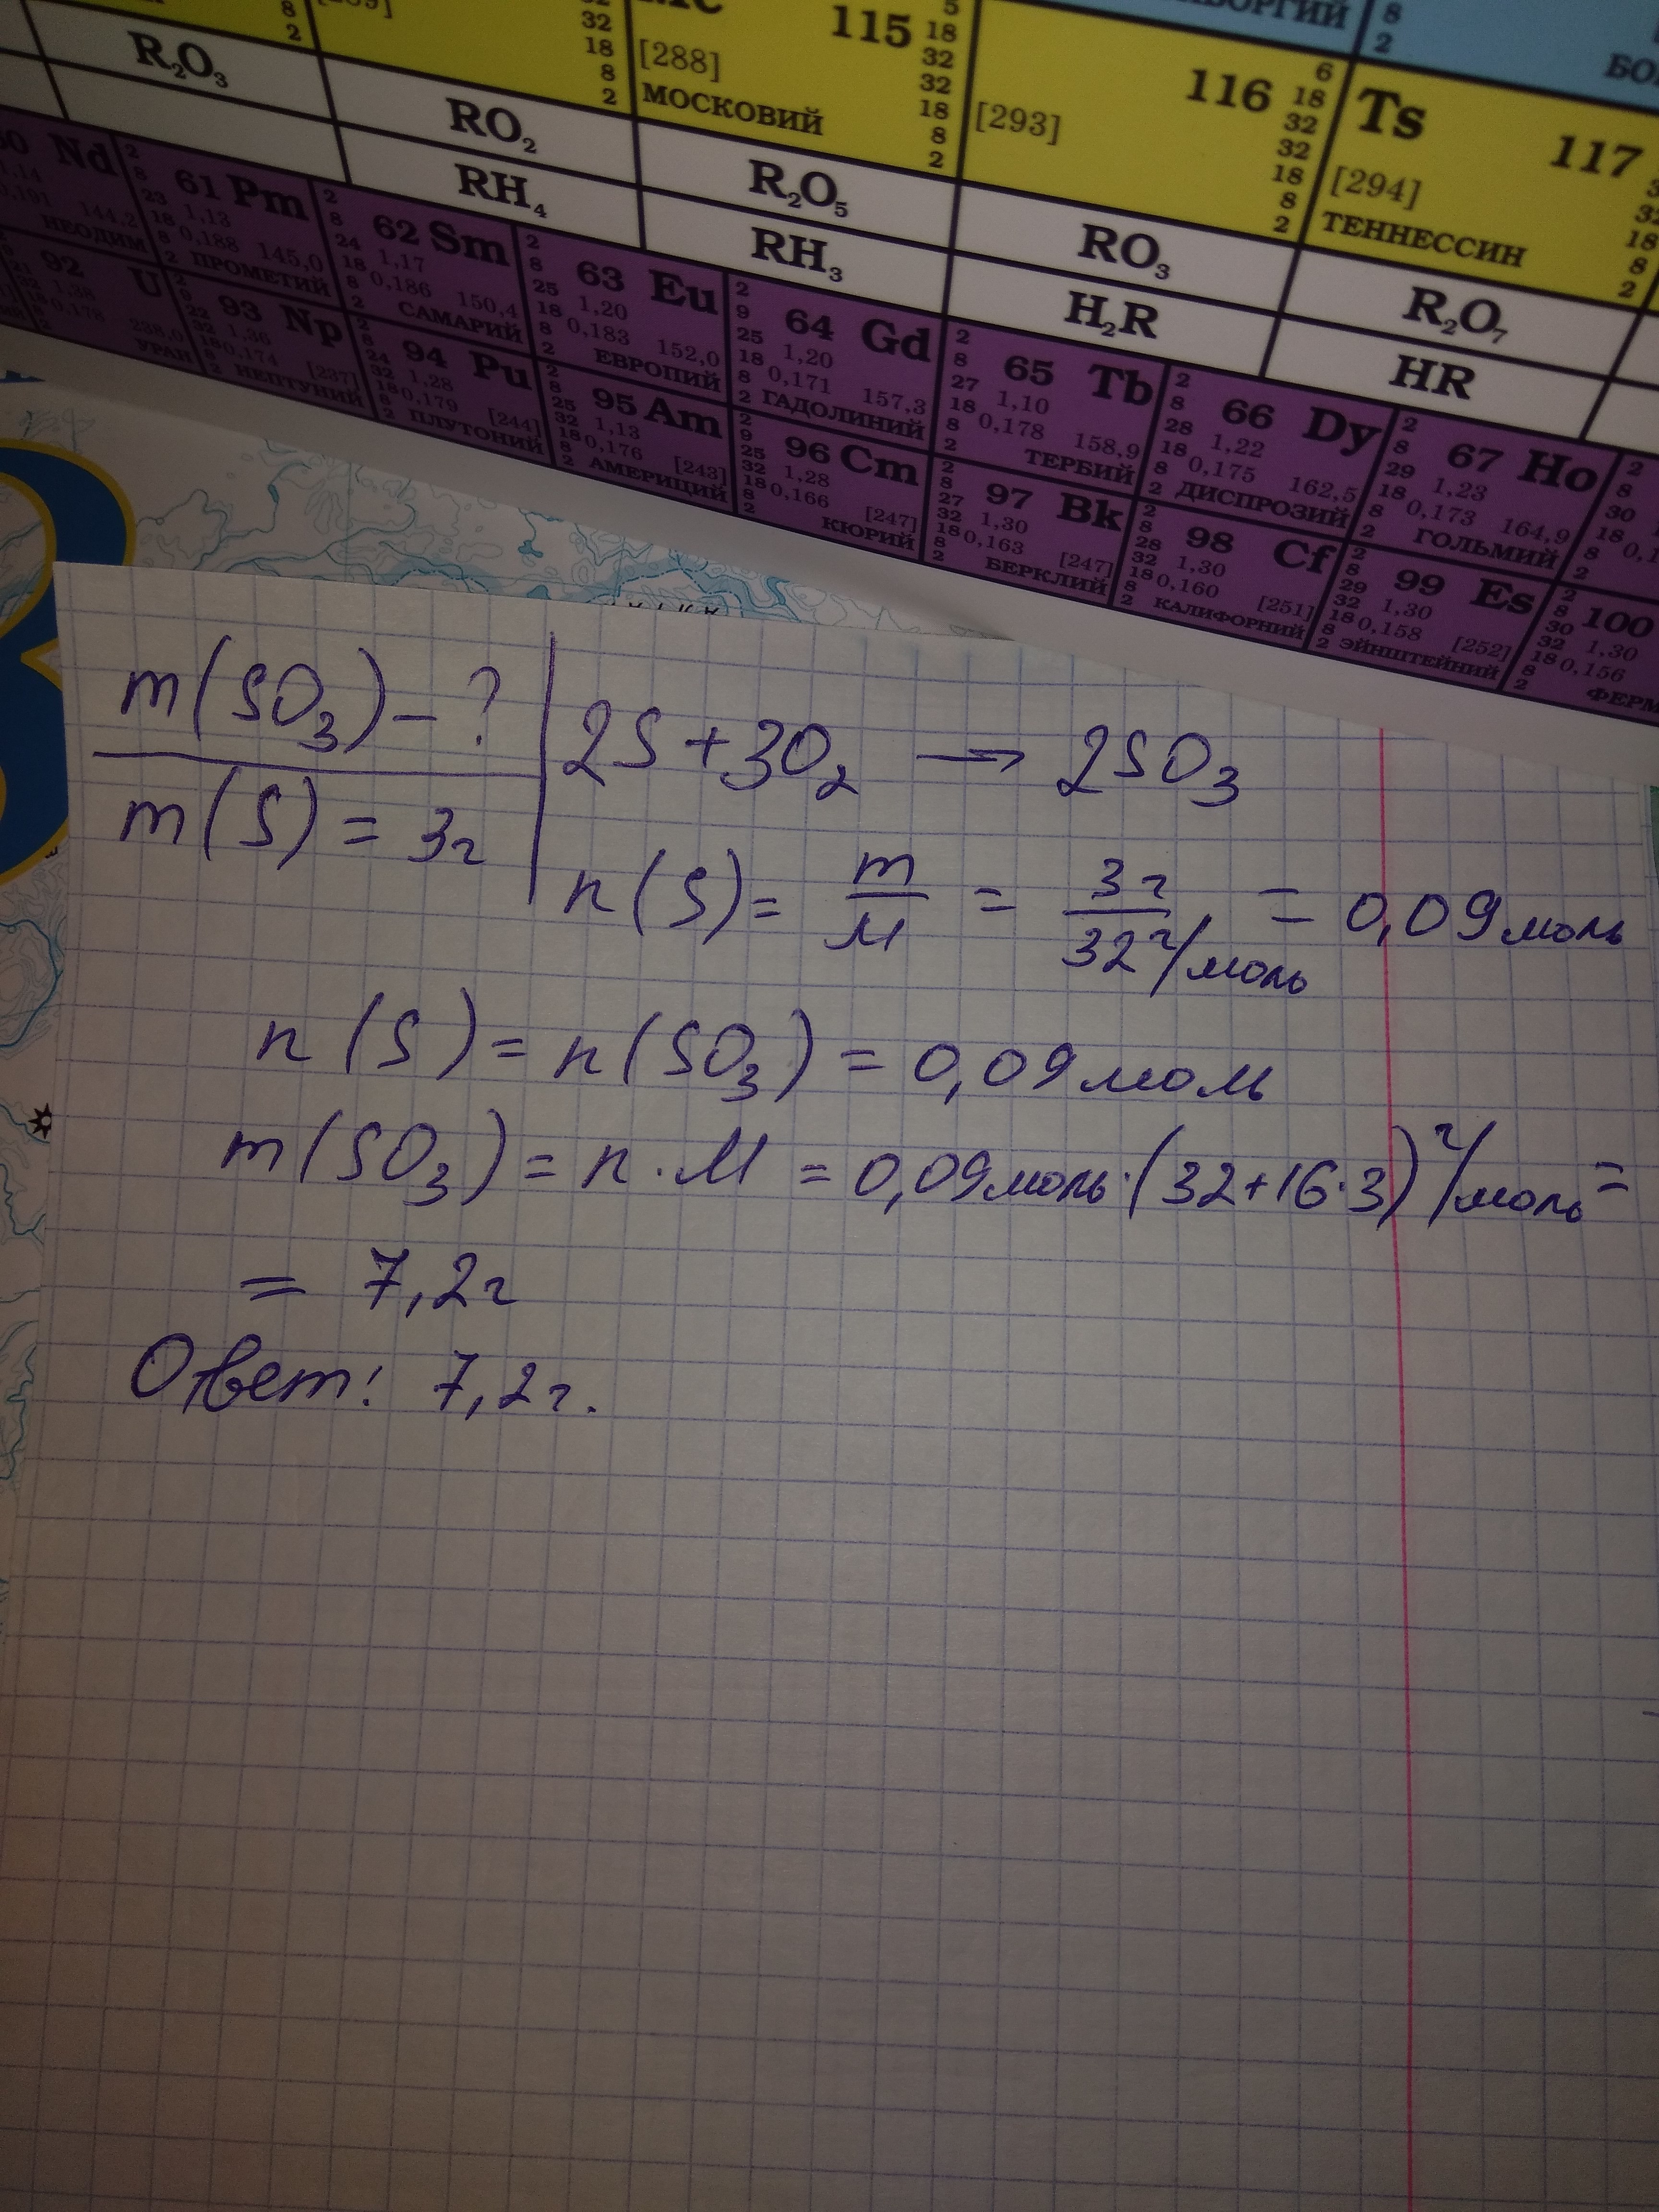 115
[288]
МОСКОВИЙ
116
[293]
Ts 117
[294]
ТЕННЕССИН
R₂O₃ RO₂ R₂O₅ RO₃ R₂O₇
RH₄ RH₃ H₂R HR
Nd
144,2
НЕОДИМ
61 Pm
1,13
0,188 145,0
ПРОМЕТИЙ
62 Sm
1,17
0,186 150,4
САМАРИЙ
63 Eu
1,20
0,183 152,0
ЕВРОПИЙ
64 Gd
1,20
0,171 157,3
ГАДОЛИНИЙ
65 Tb
1,10
0,178 158,9
ТЕРБИЙ
66 Dy
1,22
0,175 162,5
ДИСПРОЗИЙ
67 Ho
1,23
0,173 164,9
ГОЛЬМИЙ
92 U
1,38
0,178 238,0
УРАН
93 Np
1,36
0,174 [237]
НЕПТУНИЙ
94 Pu
1,28
0,179 [244]
ПЛУТОНИЙ
95 Am
1,13
0,176 [243]
АМЕРИЦИЙ
96 Cm
1,28
0,166 [247]
КЮРИЙ
97 Bk
1,30
0,163 [247]
БЕРКЛИЙ
98 Cf
1,30
0,160 [251]
КАЛИФОРНИЙ
99 Es
1,30
0,158 [252]
ЭЙНШТЕЙНИЙ
100
1,30
0,156
m(SO₃) – ?
m(S) = 3г
2S + 3O₂ → 2SO₃
n(S) = m/M = 3г/32г/моль = 0,09моль
n(S) = n(SO₃) = 0,09моль
m(SO₃) = n · M = 0,09моль·(32+16·3)г/моль =
= 7,2г
Ответ: 7,2г.